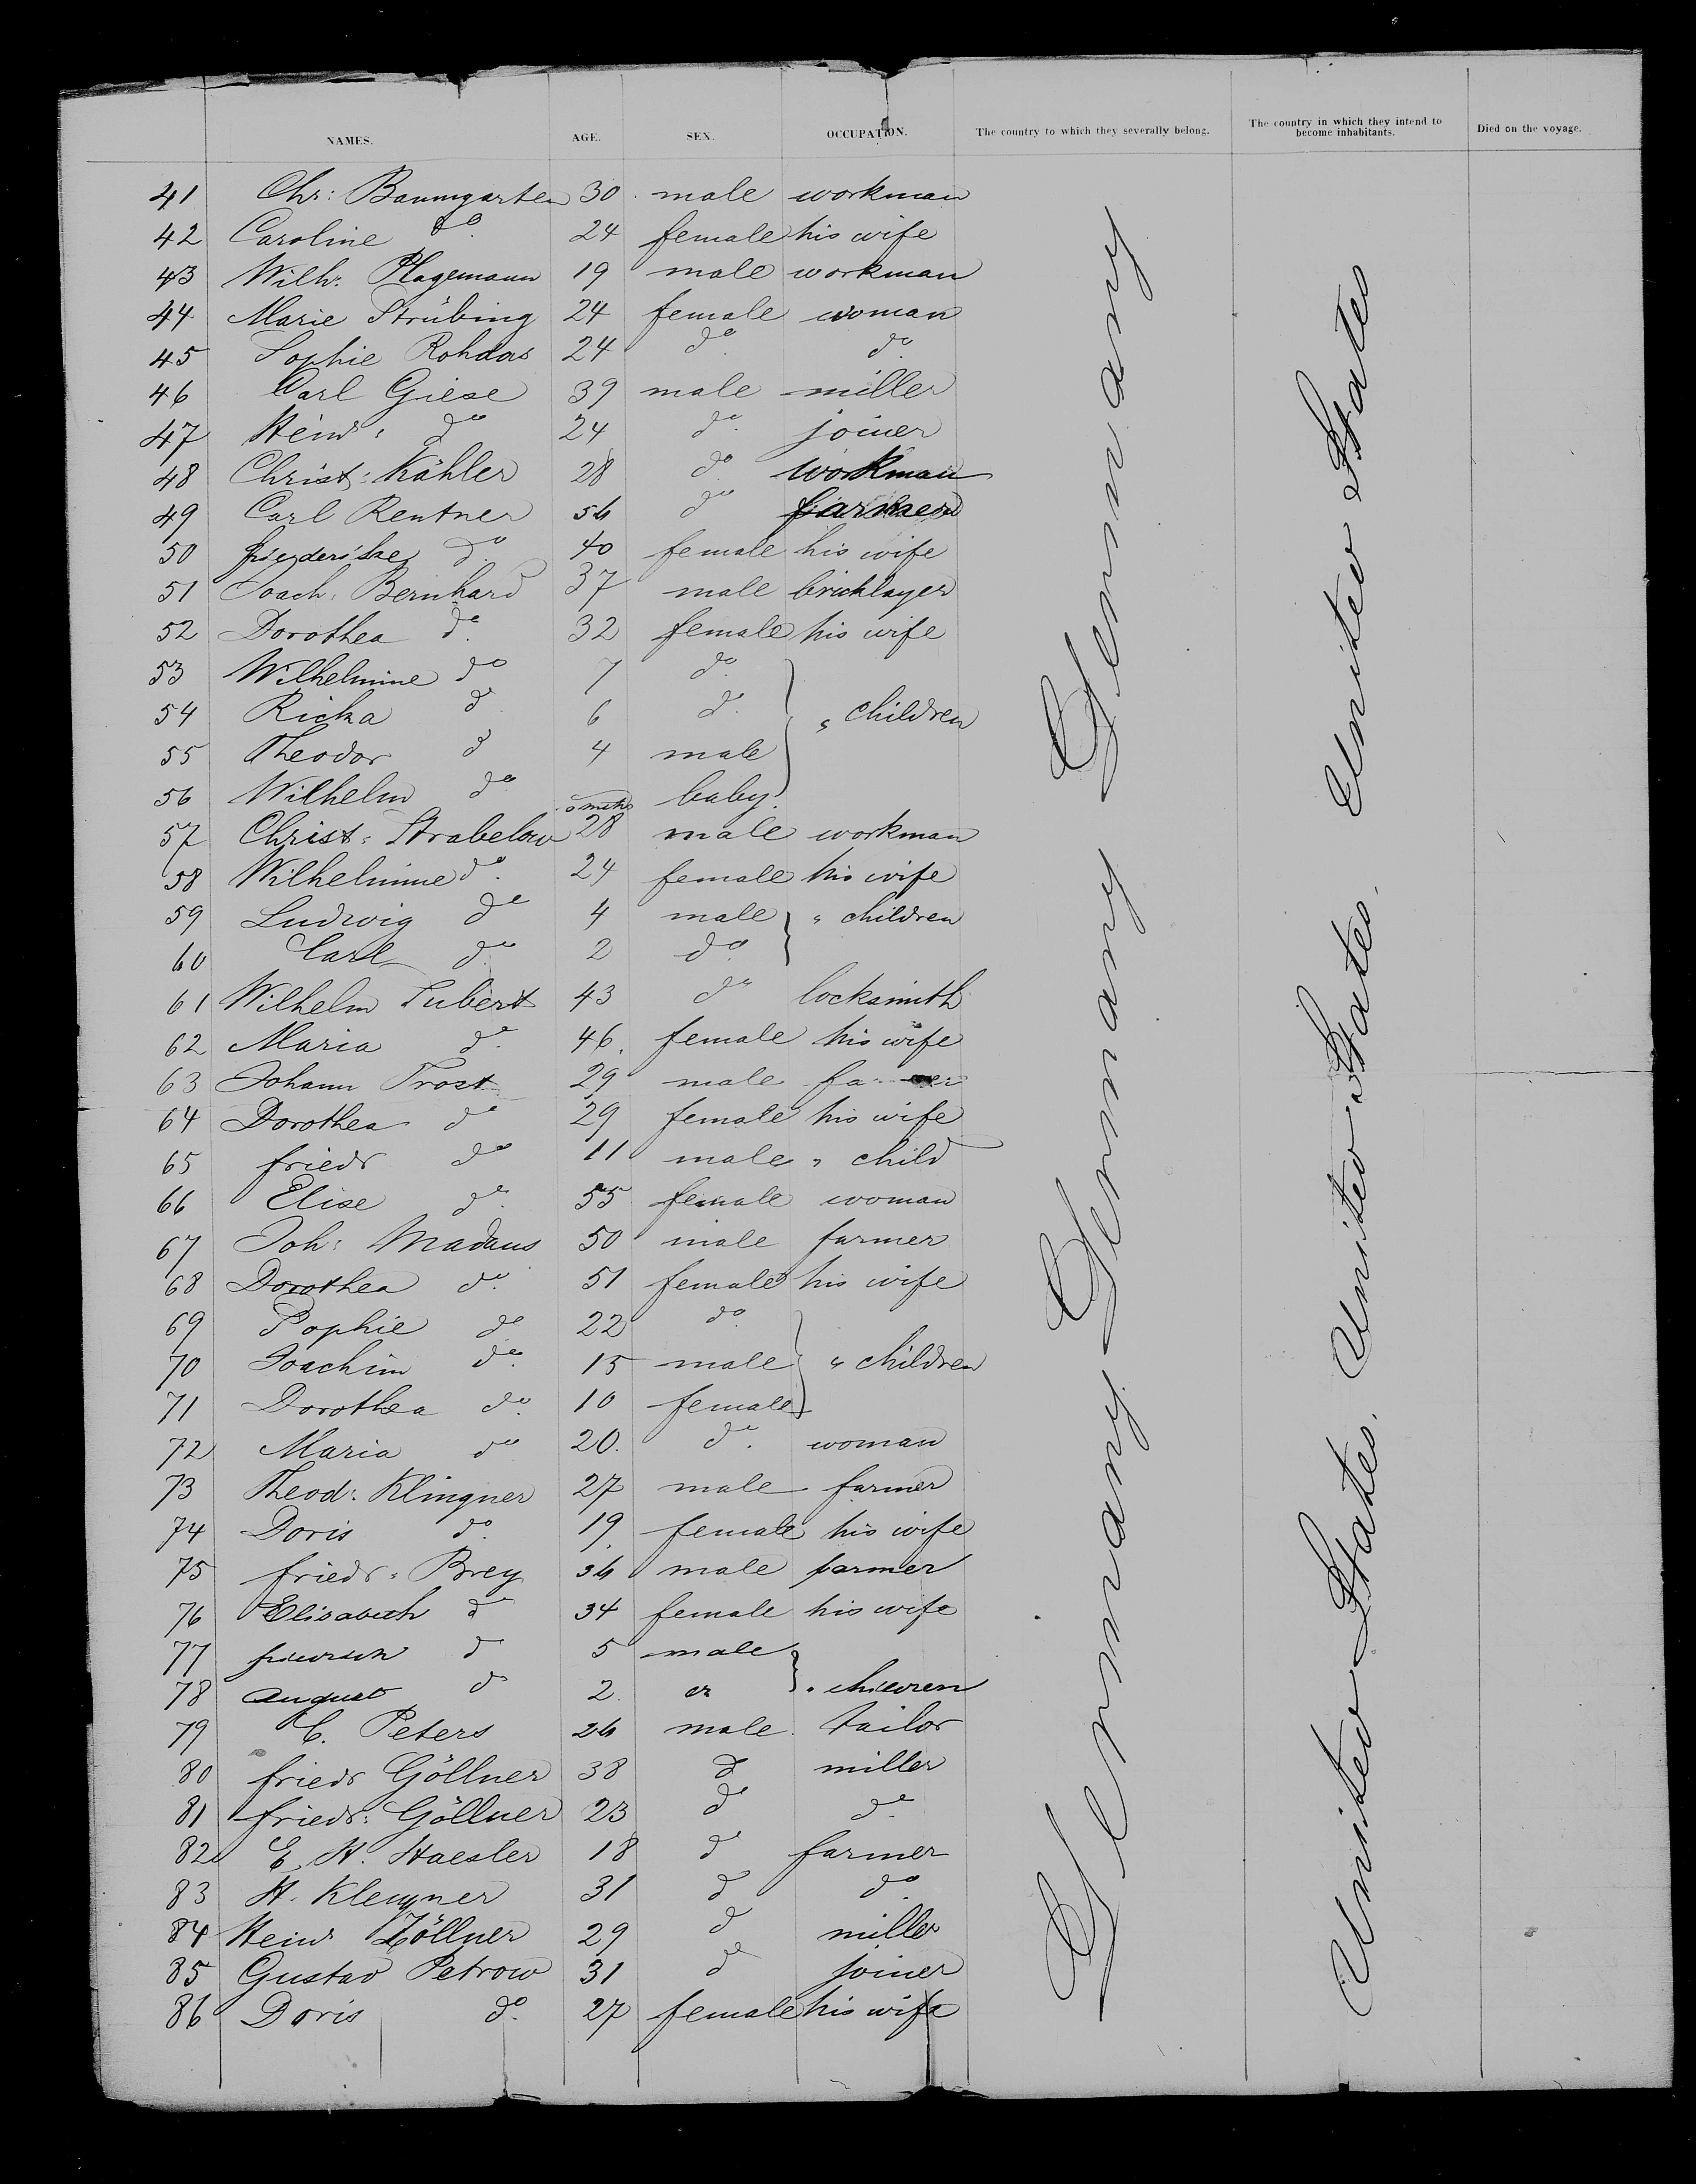 NAMES. AGE. SEX. OCCUPATION. The country to which they severally belong. The country in which they intend to become inhabitants. Died on the voyage.
41 Chr: Baumgarten 30 male workman
42 Caroline do 24 female his wife
43 Wilh: Plagemann 19 male workman
44 Marie Strübing 24 female woman
45 Sophie Rohdas 24 do do
46 Carl Giese 39 male miller
47 Heinr: do 24 do joiner
48 Christ: Kähler 28 do workman
49 Carl Rentner 56 do farmer
50 friederike do 40 female his wife
51 Joach: Bernhard 37 male bricklayer
52 Dorothea do 32 female his wife
53 Wilhelmine do 7 do
54 Ricka do 6 do " children
55 Theodor do 4 male
56 Wilhelm do mths baby
57 Christ: Strabelow 28 male workman
58 Wilhelmine do 24 female his wife
59 Ludwig do 4 male " children
60 Carl do 2 do
61 Wilhelm Lubert 43 do locksmith
62 Maria do 46. female his wife
63 Johann Trost 29 male farmer
64 Dorothea do 29 female his wife
65 friedr do 11 male " child
66 Elise do 55 female woman
67 Joh: Madaus 50 male farmer
68 Dorothea do 51 female his wife
69 Sophie do 22 do
70 Joachim do 15 male " children
71 Dorothea do 10 female
72 Maria do 20. do. woman
73 Theod: Klingner 27 male farmer
74 Doris do 19. female his wife
75 friedr: Brey 36 male farmer
76 Elisabeth do 34 female his wife
77 friedrich do 5 male
78 August do 2. do " children
79 C. Peters 26 male tailor
80 friedr Göllner 38 do miller
81 friedr: Göllner 23 do do
82 E. H. Haesler 18 do farmer
83 H. Klemner 31 do do
84 Heinr Zöllner 29 do miller
85 Gustav Petrow 31 do joiner
86 Doris do. 27 female his wife
Germany Germany Germany
United States. United States. United States